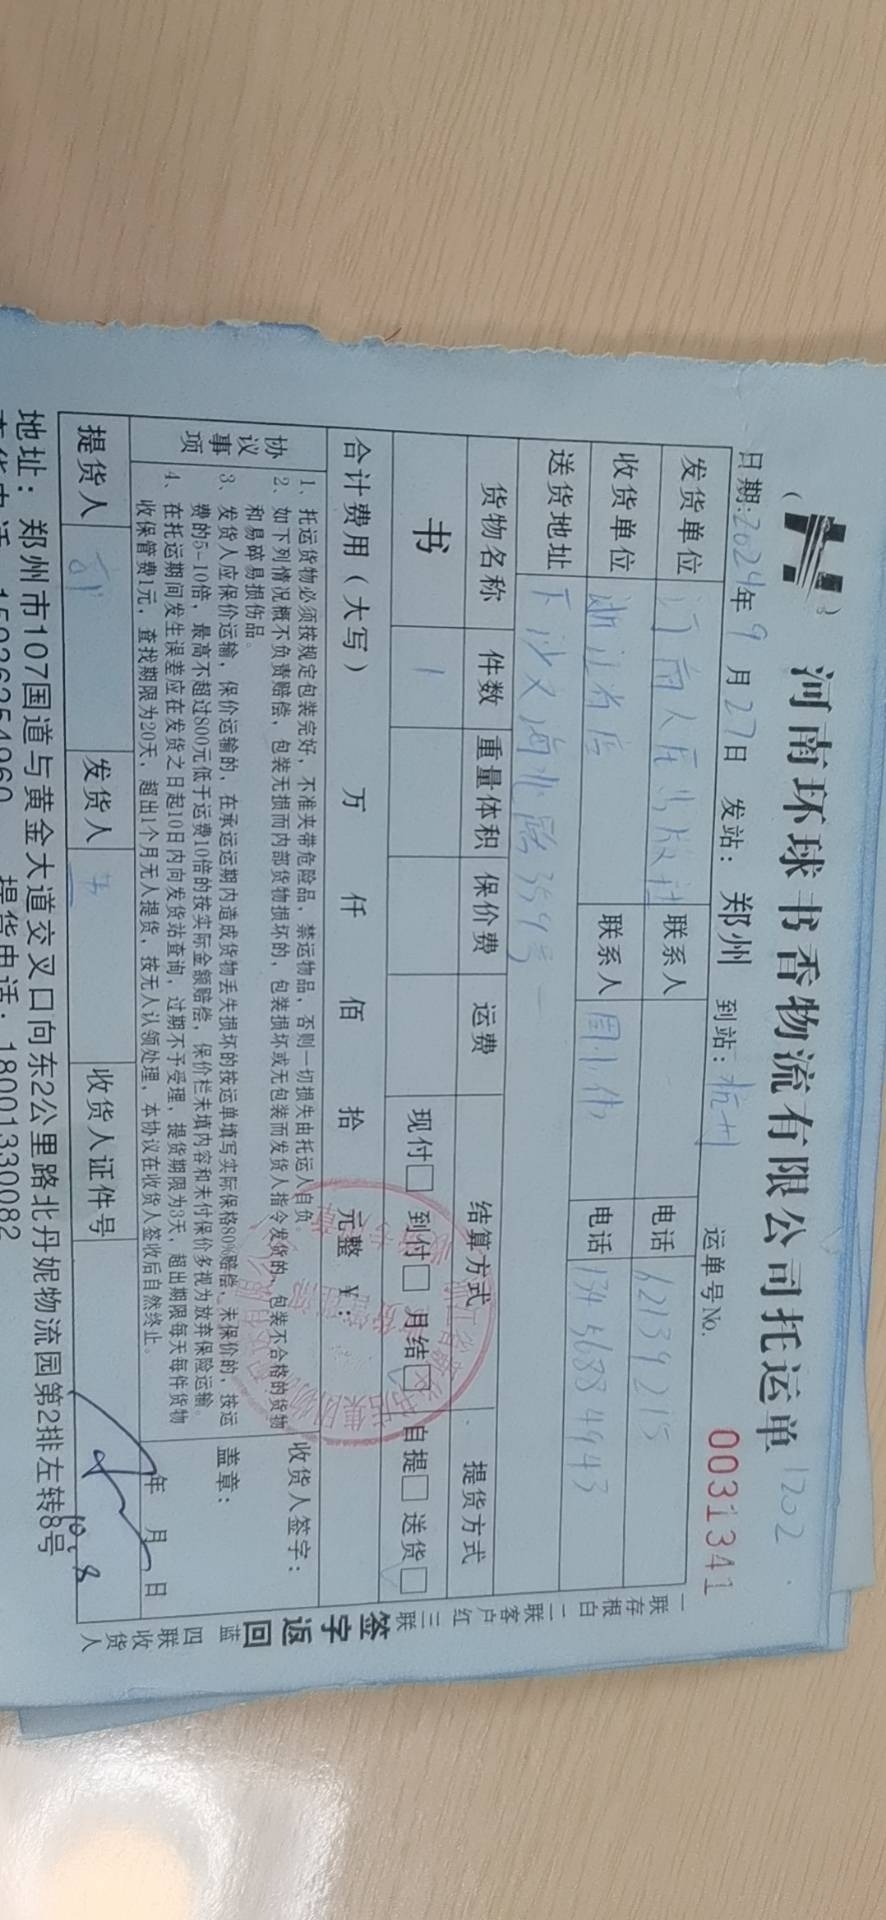 河南环球书香物流有限公司托运单 1202
日期:2024年9月27日 发站：郑州 到站：杭州 运单号No. 0031341
发货单位 河南人民出版社 联系人 电话 62139215
收货单位 浙江省店 联系人 周小伟 电话 13456884943
送货地址 下沙文海北路359号
货物名称 件数 重量体积 保价费 运费 结算方式 提货方式
书 1 现付□ 到付□ 月结□ 自提□ 送货□
合计费用（大写） 万 仟 佰 拾 元整 ￥：
协议事项
1、托运货物必须按规定包装完好，不准夹带危险品，禁运物品，否则一切损失由托运人自负。
2、如下列情况概不负责赔偿，包装无损而内部货物损坏的，包装损坏或无包装而发货人指令发货的，包装不合格的货物
和易碎易损伤品。
3、发货人应保价运输，保价运输的，在承运运期内造成货物丢失损坏的按运单填写实际保格80%赔偿，未保价的，按运
费的5-10倍，最高不超过800元低于运费10倍的按实际金额赔偿，保价栏未填内容和未付保价多视为放弃保险运输。
4、在托运期间发生误差应在发货之日起10日内向发货站查询，过期不予受理，提货期限为3天，超出期限每天每件货物
收保管费1元，查找期限为20天，超出1个月无人提货，按无人认领处理，本协议在收货人签收后自然终止。
收货人签字：
盖章：
年 月 日
提货人 发货人 收货人证件号
10.8
地址：郑州市107国道与黄金大道交叉口向东2公里路北丹妮物流园第2排左转8号
提货电话：18001330082
一联存根白 二联客户红 三联签字返回蓝 四联收货人